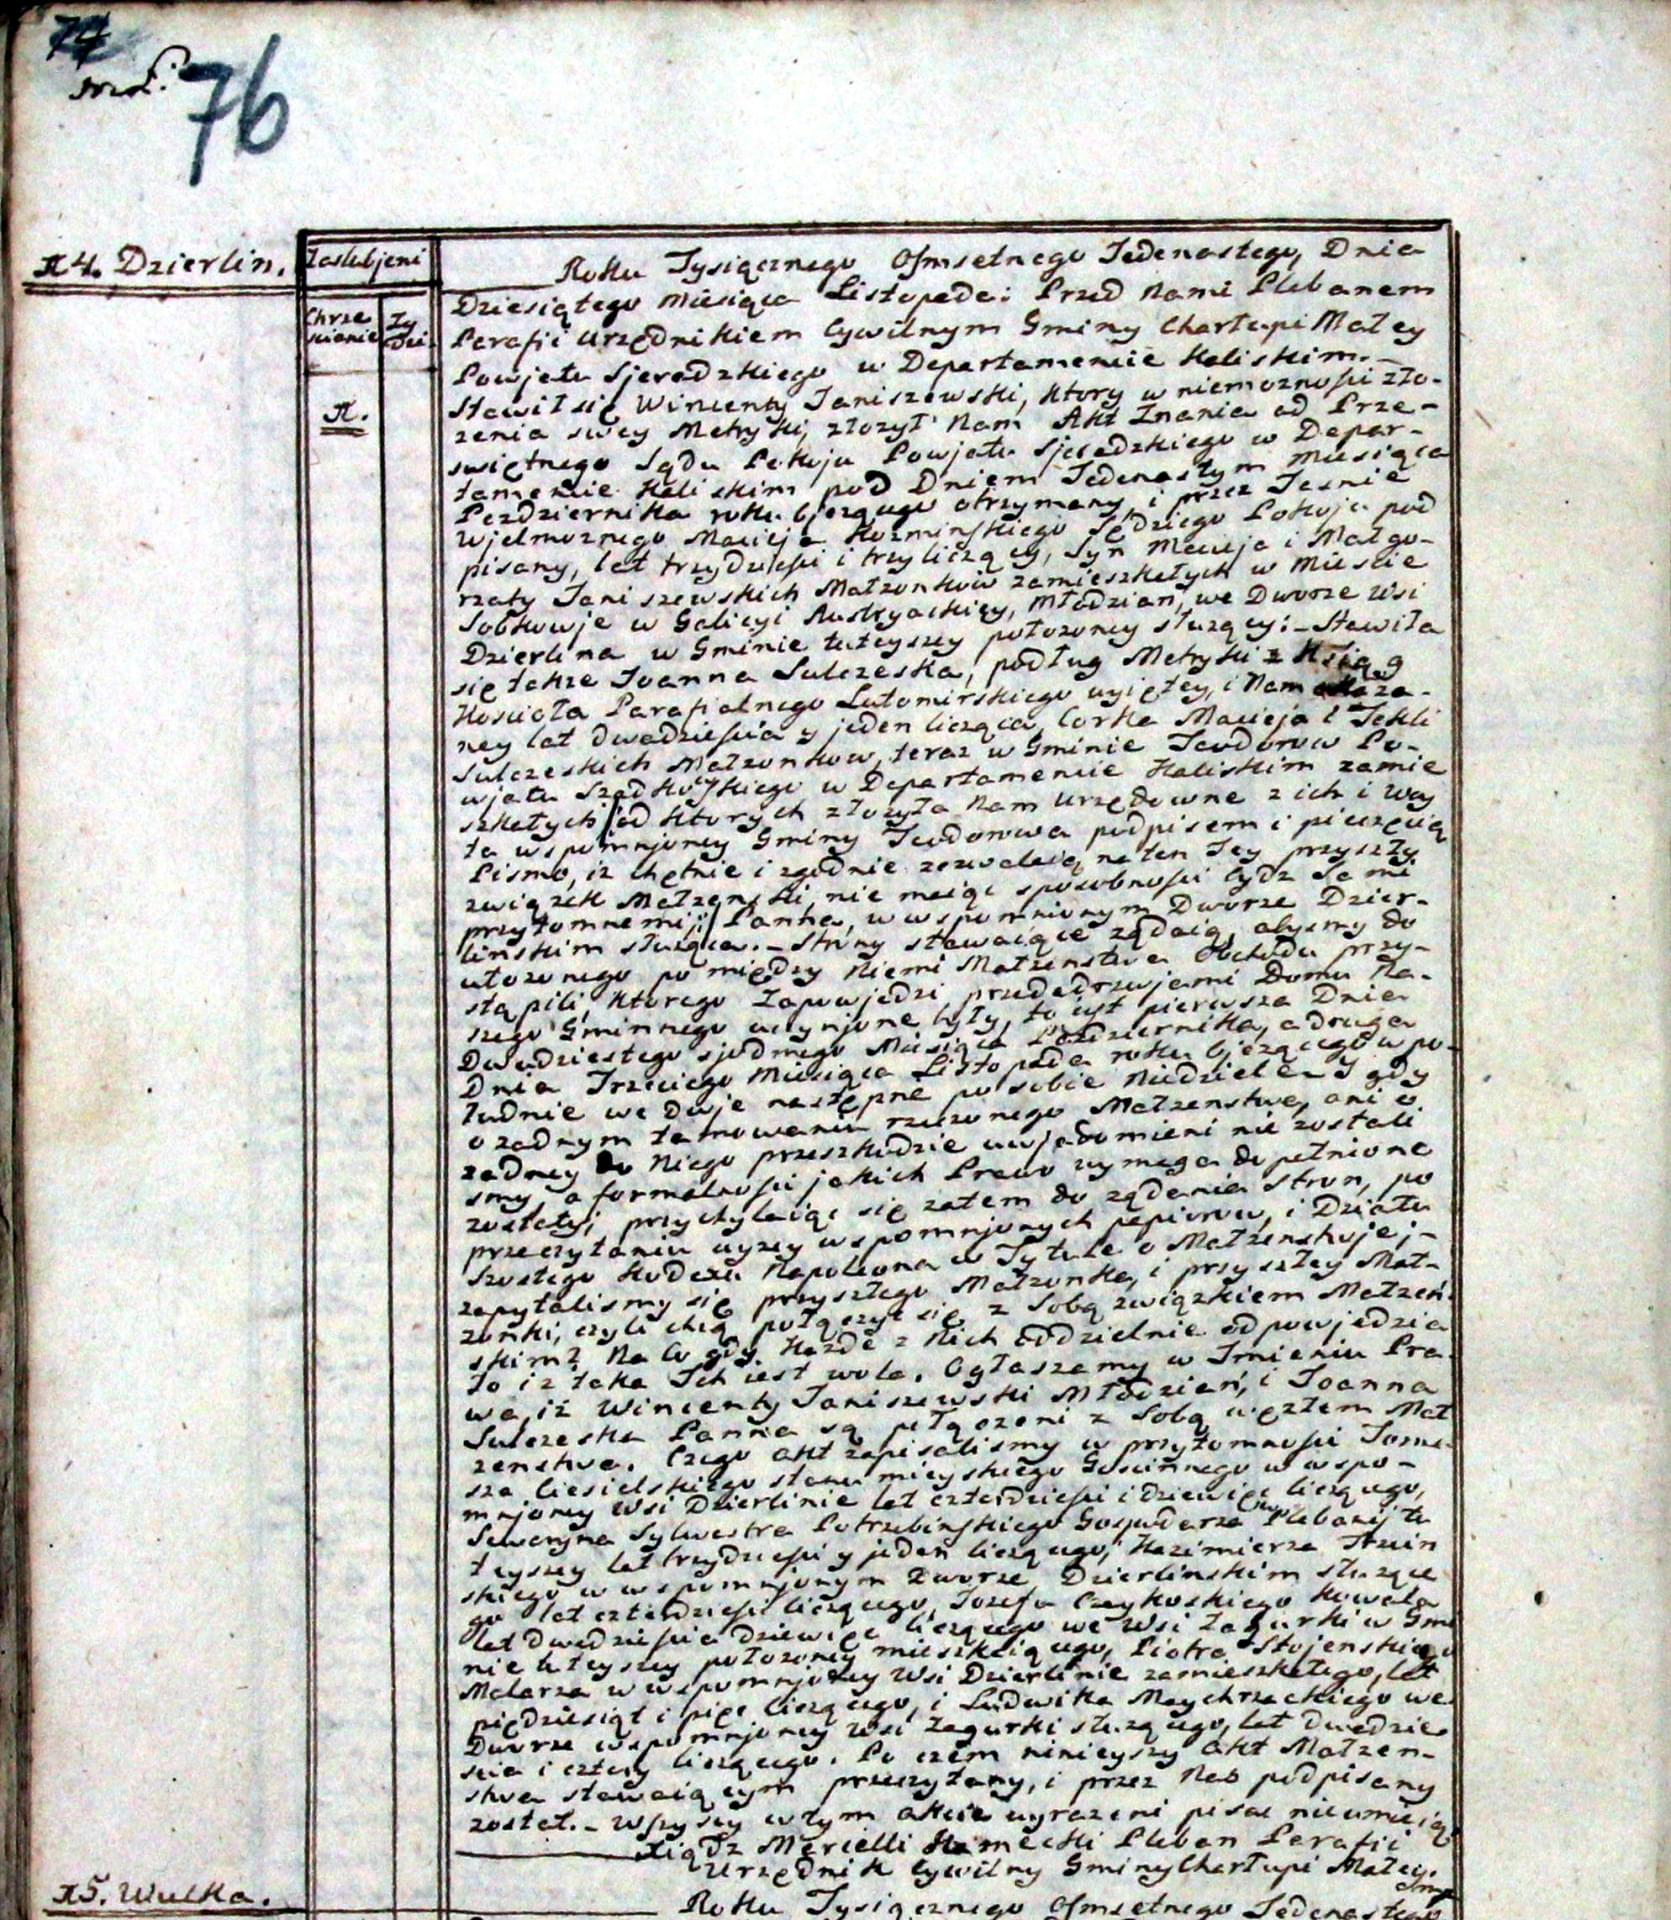 74
76
14. Dzierlin.
Zaslubjeni
Chrze
scianie
Zy
dzi.
1.
Roku Tysiącznego Osmsetnego Jedenastego, Dnia
Dziesiątego Miesiąca Listopada: Przed Nami Plebanem
Parafii Urzędnikiem Cywilnym Gminy Chartupi Małey
Powjatu Sjeradzkiego w Departamencie Kaliskim.-
Stawił się Wincenty Janiszewski, ktory w niemoznosci zło-
zenia swey Metryki, złozył Nam Akt Znania od Prze-
swiętnego Sądu Pokoju Powjatu Sjeradzkiego w Depar-
tamencie Kaliskim pod Dniem Jedenastym Miesiąca
Pazdziernika roku bjezącego otrzymany, i przez Jasnie
Wjelmoznego Macieja Kozminskiego Sędziego Pokoju pod
pisany, lat trzydziesci i trzy liczący, Syn Macieja i Małgo-
rzaty Janiszewskich Małzonkow zamieszkałych w Miescie
Sobkowje w Galicyi Austryackiey, Młodzian, we Dworze Wsi
Dzierlina w Gminie tuteyszey połozoney słuzący: - Stawiła
się takze Joanna Sulczeska, podług Metryki z Ksiąg
Koscioła Parafialnego Lutomirskiego wyiętey, i Nam okaza-
ney lat dwadziescia y jeden licząca, Corka Macieja i Tekli
Sulczeskich Małzonkow, teraz w Gminie Teodorow Po-
wjatu Szadkoẃskiego w Departamencie Kaliskim zamie
szkałych od ktorych złozyła Nam Urzędowne z ich i Woy
ta wspomnjoney Gminy Teodorowa podpisem i pieczęcią
Pismo, iz chętnie i zgodnie zezwalaią na ten Jey przyszły
związek Małzenski, nie maiąc sposobnosci bydz Sami
przytomnemi; Panna, w wspomnionym Dworze Dzier-
linskim słuząca. - Strony stawaiące ządaią, abysmy do
ułozonego pomiędzy Niemi Małzenstwa Obchodu przy-
stąpili, ktorego Zapowjedzi przededrzwjami Domu Na-
szego Gminnego uczynjone były, to iest pierwsza Dnia
Dwudziestego sjodmego Miesiąca Pazdziernika, a druga
Dnia Trzeciego Miesiąca Listopada roku bjezącego w po-
łudnie we dwje następne po sobie Niedziele. Y gdy
o zadnym tamowaniu rzeczonego Małzenstwa, ani o
zadney do Niego przeszkodzie uwjadomieni nie zostali
smy, a formalnosci jakich Prawo wymaga dopełnione
zostały; przychylaiąc się zatem do ządania Stron, po
przeczytaniu wyzey wspomnjonych papierow, i Działu
Szostego Kodexu Napoleona w Tytule o Małzenstwje; -
zapytalismy się przyszłego Małzonka, i przyszłey Mał-
zonki, czyli chcą połączyc się z Sobą związkiem Małzen-
skim? Na co gdy Kazde z Nich oddzielnie odpowjedzia
ło iz taka Ich iest wola. Ogłaszamy w Imieniu Pra-
wa, iz Wincenty Janiszewski Młodzian, i Joanna
Sulczeska Panna są połączeni z Sobą węzłem Mał
zenstwa. Czego akt zapisalismy w przytomnosci Toma-
sza Ciesielskiego stanu mieyskiego Goscinnego w wspo-
mnjoney Wsi Dzierlinie lat czterdziesci i dziewięc liczącego,
Seweryna Sylwestra Potrzebinskiego Gospodarza Plebanij tu
teyszey lat trzydziesci y jeden liczącego, Kazimierza
skiego w wspomnjonym Dworze Dzierlinskim słuzące
go lat czterdziesci liczącego, Jozefa Czaykoskiego Kowala
lat dwadziescia dziewięc liczącego we Wsi Zagurki w Gmi
nie tuteyszey połozoney mieszkaiącego, Piotra Stojenskiego
Malarza w wspomnjoney Wsi Dzierlinie zamieszkałego, lat
pięcdziesiąt i pięc liczącego, i Ludwika Maychrzackiego we
Dworze wspomnjoney Wsi Zagurki słuzącego, lat dwadzie-
scia i cztery liczącego. Po czem ninieyszy akt Małzen-
stwa stawaiącym przeczytany, i przez Nas podpisany
został. - Wszyscy w tym akcie wyrazeni pisac nieumieią
Xiądz Marcelli Kamecki Pleban Parafii
Urzędnik Cywilny Gminy Chartupi Małey.
15. Wulka.
Roku Tysiącznego Osmsetnego Jedenastego